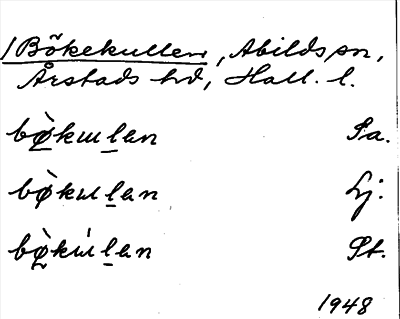 /Bökekullen, Abilds sn,
Årstads hd, Hall. l.
bø̲̀kɯl̲an Sa.
bø̀kɯl̲an Lj.
bø̲̀kɯ́l̲an St.
1948